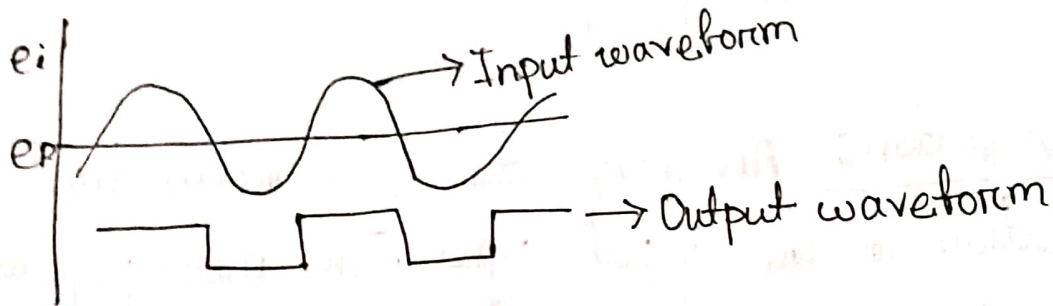 ei
Input waveform
eR
Output waveform